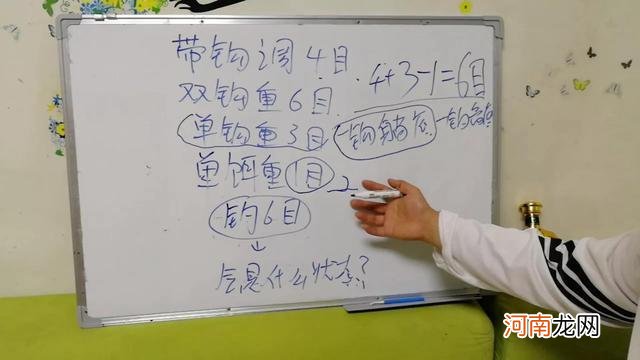 带钩调4目
4+3-1=6目
双钩重6目
单钩重3目 一钩躺底 一钩
单饵重1目 2
钓6目
↓
是什么状态?
河南龙网